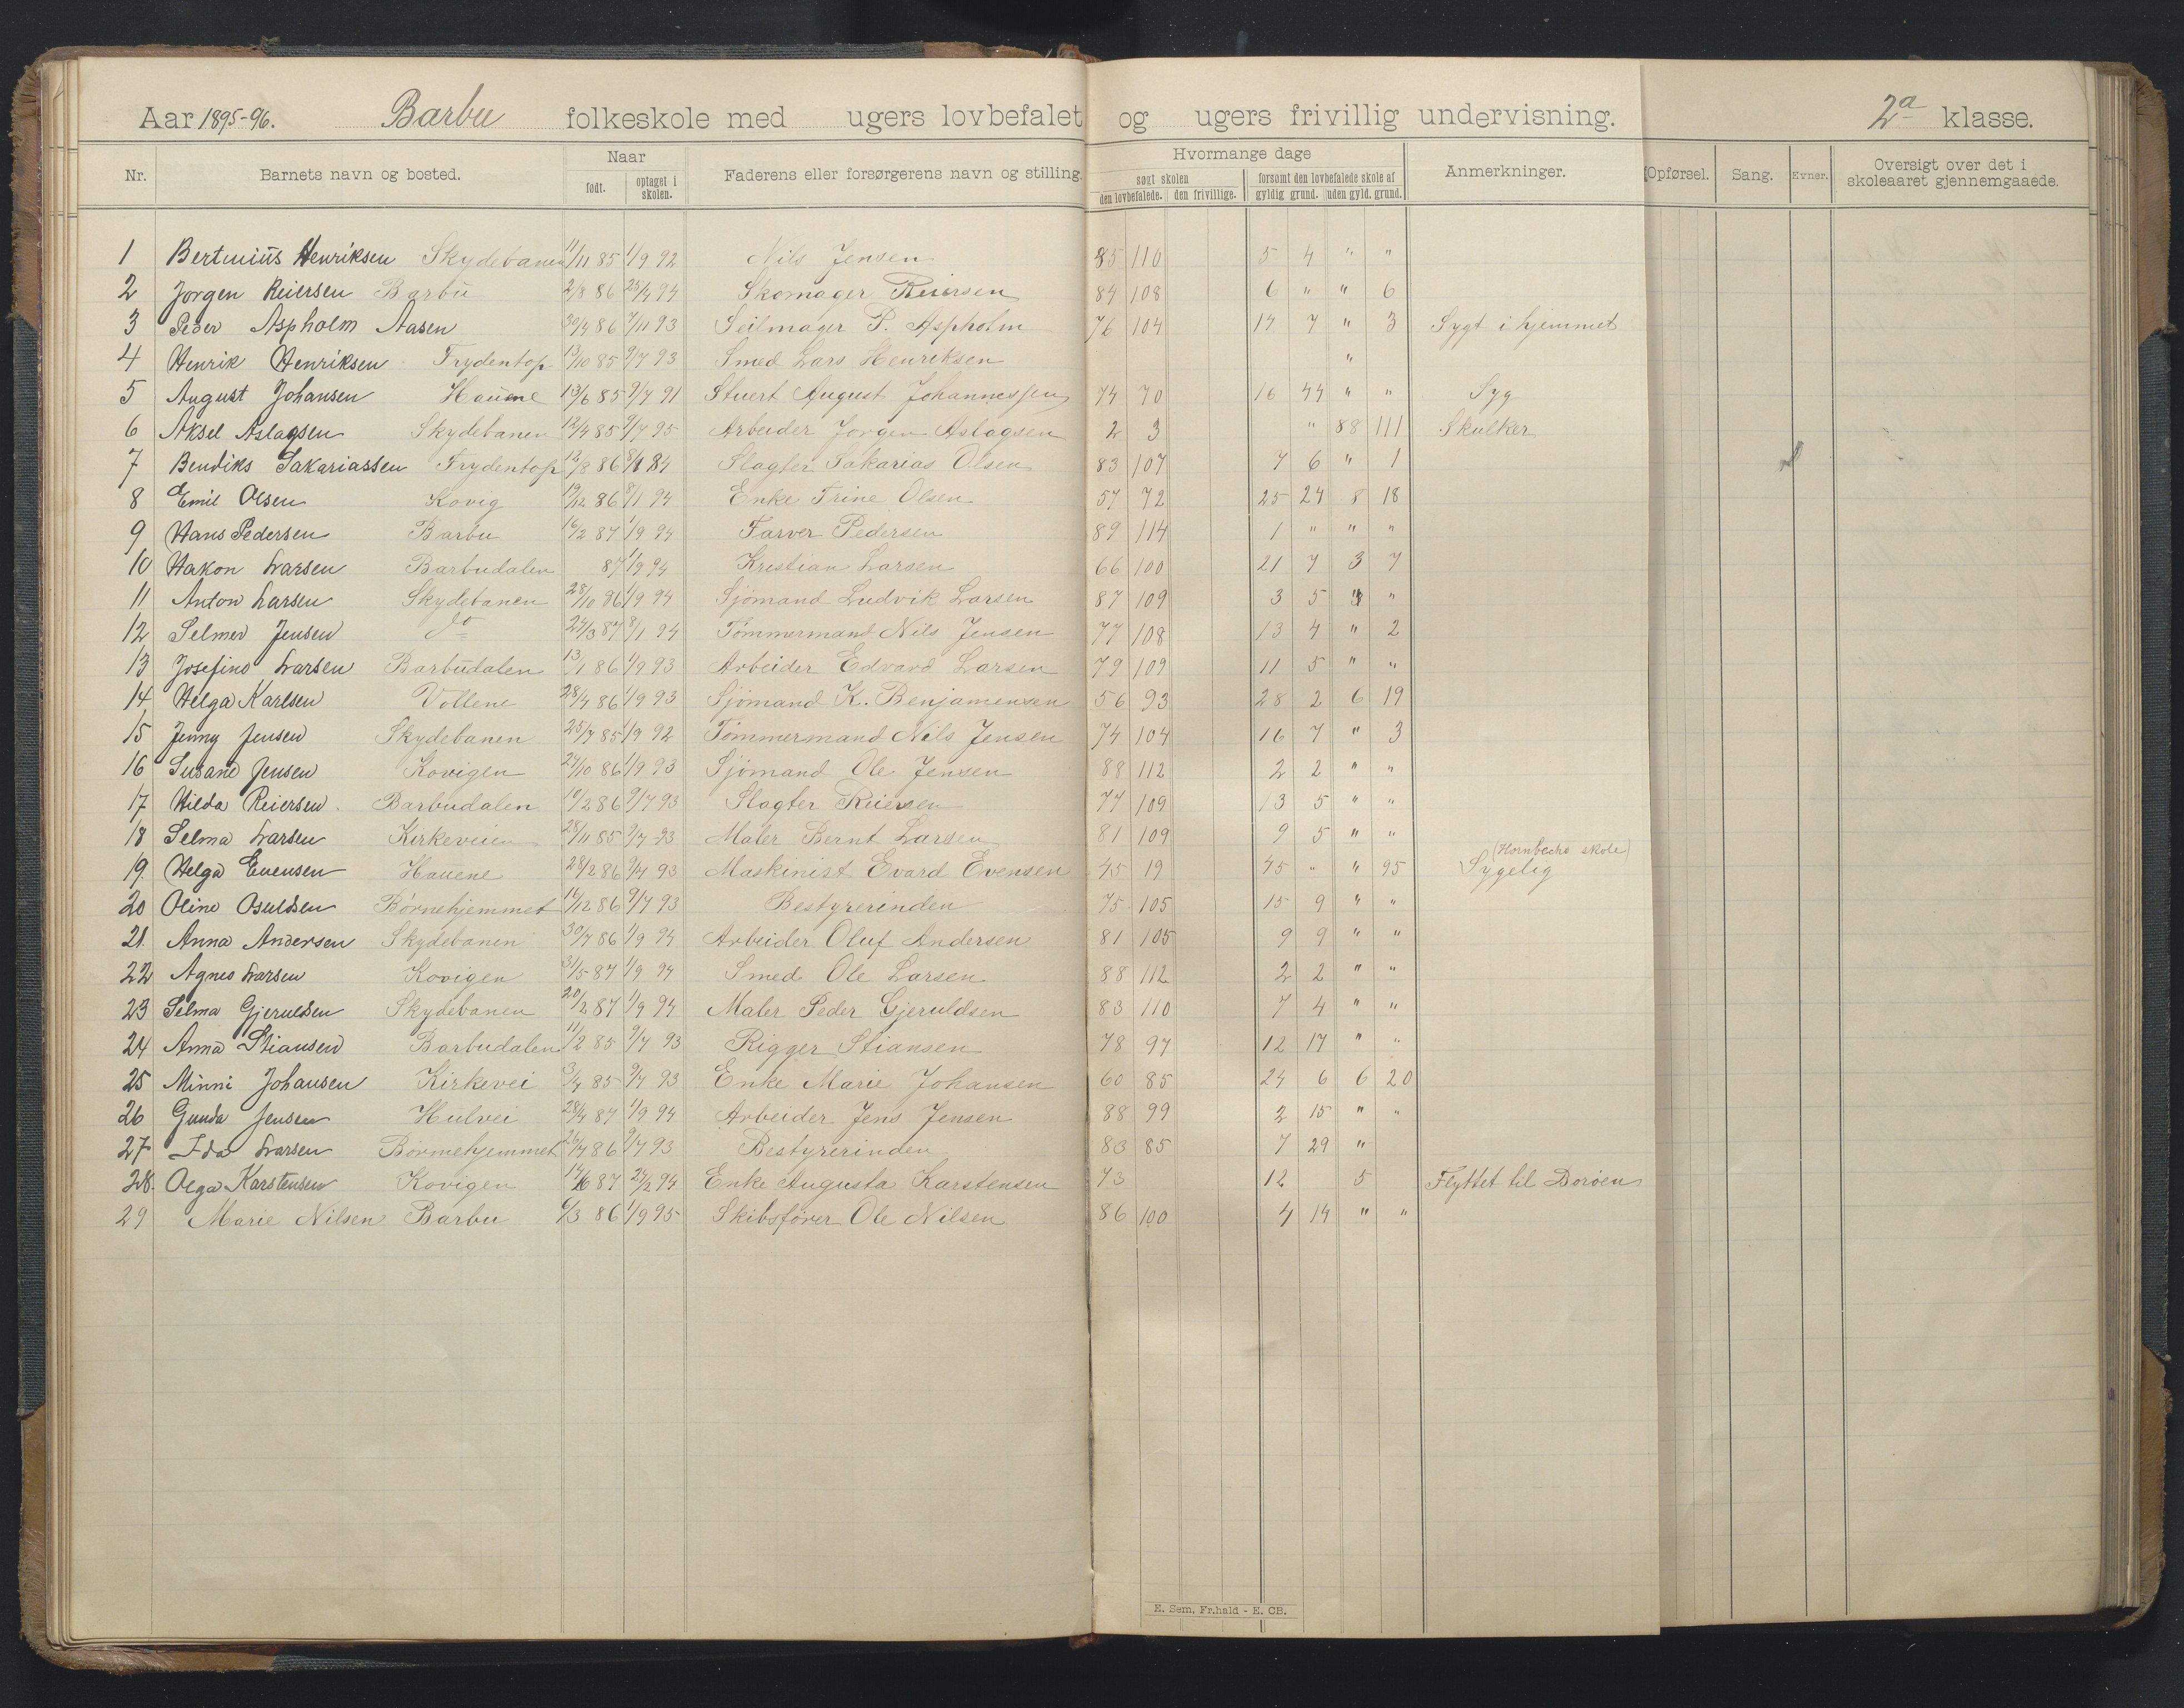 Aar 1895-96. Barbu folkeskole med ugers lovbefalet og ugers frivillig undervisning. 2a klasse.
Nr. Barnets navn og bosted. Naar født. optaget i skolen. Faderens eller forsørgerens navn og stilling. Hvormange dage søgt skolen den lovbefalede. den frivillige. forsømt den lovbefalede skole af gyldig grund. uden gyld. grund. Anmerkninger. Opførsel. Sang. Evner. Oversigt over det i skoleaaret gjennemgaaede.
1 Bertinius Henriksen Skydebanen 11/11 85 1/9 92 Nils Jensen 85 110 5 4 " "
2 Jørgen Reiersen Barbu 2/8 86 25/4 94 Skomager Reiersen 84 108 6 " " 6
3 Peder Aspholm Aasen 30/4 86 7/11 93 Seilmager P. Aspholm 76 104 14 7 " 3 Sygt i hjemmet
4 Henrik Henriksen Frydentop 13/10 85 9/7 93 Smed Lars Henriksen "
5 August Johansen Hauene 13/6 85 9/7 91 Stuert August Johannessen 74 70 16 44 " " Syg
6 Aksel Aslagsen Skydebanen 12/4 85 9/7 95 Arbeider Jørgen Aslagsen 2 3 " 88 111 Skulker
7 Bendiks Sakariassen Frydentop 12/8 86 8/8 84 Slagter Sakarias Olsen 83 107 7 6 " 1
8 Emil Olsen Kovig 19/12 86 8/1 94 Enke Trine Olsen 57 72 25 24 8 18
9 Hans Pedersen Barbu 16/2 87 1/9 94 Farver Pedersen 89 114 1 " " "
10 Hakon Larsen Barbudalen 87 1/9 94 Kristian Larsen 66 100 21 7 3 7
11 Anton Larsen Skydebanen 28/10 86 1/9 94 Sjømand Ludvik Larsen 87 109 3 5 " "
12 Selmer Jensen do 24/3 87 8/1 94 Tømmermand Nils Jensen 77 108 13 4 " 2
13 Josefine Larsen Barbudalen 13/1 86 1/9 93 Arbeider Edvard Larsen 79 109 11 5 " "
14 Helga Karlsen Vollene 28/4 86 1/9 93 Sjømand K. Benjamensen 56 93 28 2 6 19
15 Jenny Jensen Skydebanen 25/7 85 1/9 92 Tømmermand Nils Jensen 74 104 16 7 " 3
16 Susane Jensen Kovigen 27/10 86 1/9 93 Sjømand Ole Jensen 88 112 2 2 " "
17 Hilda Reiersen Barbudalen 10/2 86 9/7 93 Slagter Reiersen 77 109 13 5 " "
18 Selma Larsen Kirkeveien 28/11 85 9/7 93 Maler Bernt Larsen 81 109 9 5 " "
19 Helga Evensen Hauene 28/2 86 9/7 93 Maskinist Evard Evensen 45 19 45 " " 95 Sygelig (Hornbechs skole)
20 Oline Osuldsen Børnehjemmet 14/12 86 9/7 93 Bestyrerinden 75 105 15 9 " "
21. Anna Andersen Skydebanen 30/7 86 1/9 94 Arbeider Oluf Andersen 81 105 9 9 " "
22 Agnes Larsen Kovigen 31/5 87 1/9 94 Smed Ole Larsen 88 112 2 2 " "
23 Selma Gjeruldsen Skydebanen 20/2 87 1/9 94 Maler Peder Gjeruldsen 83 110 7 4 " "
24 Anna Stiansen Barbudalen 11/2 85 9/7 93 Rigger Stiansen 78 97 12 17 " "
25 Minni Johansen Kirkevei 3/4 85 9/7 93 Enke Marie Johansen 60 85 24 6 6 20
26 Gunda Jensen Hulvei 28/4 87 1/9 94 Arbeider Jens Jensen 88 99 2 15 " "
27 Ida Larsen Børnehjemmet 26/4 86 9/7 93 Bestyrerinden 83 85 7 29 "
28. Olga Karstensen Kovigen 14/6 87 27/2 94 Enke Augusta Karstensen 73 12 5 Flyttet til Borøen
29 Marie Nilsen Barbu 6/3 86 1/9 95 Skibsfører Ole Nilsen 86 100 4 14 " "
E. Sem, Fr.hald - E. CB.